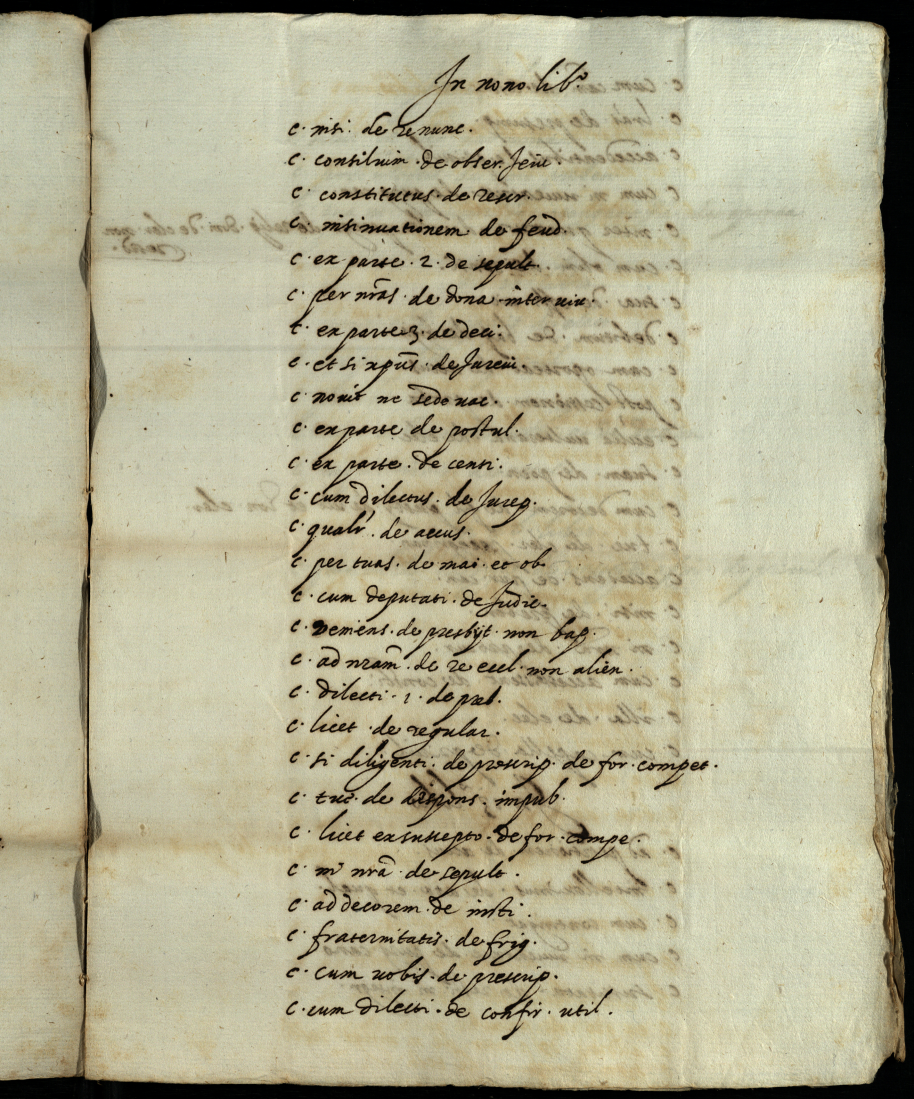 In nono lib.º
c. nisi. de renunc.
c. consilium. de obser. Jeiu.
c. constitutus. de rescr.
c. insinuationem de feud.
c. ex parte. 2. de sepult.
c. per nrãs. de dona. inter uiu.
c. ex parte 3. de deci.
c. et si xpũs. de Jureiu.
c. nouit ne sede uac.
c. ex parte de postul.
c. ex parte. de censi.
c. cum dilectus. de Jurep.
c. qualr̃. de accus.
c. per tuas. de mai. et ob.
c. cum deputati. de Judic.
c. veniens. de presbyt. non bap.
c. ad nrãm. de re eccl. non alien.
c. dilecti. 1. de preb.
c. licet. de regular.
c. si diligenti. de prescrip. de for. compet.
c. tuẽ. de despons. impub.
c. licet ex suscepto. de for. compe.
c. nrã de sepult.
c. ad decorem. de insti.
c. fraternitatis. de frig.
c. cum uobis. de prescrip.
c. cum dilecti. de confir. util.